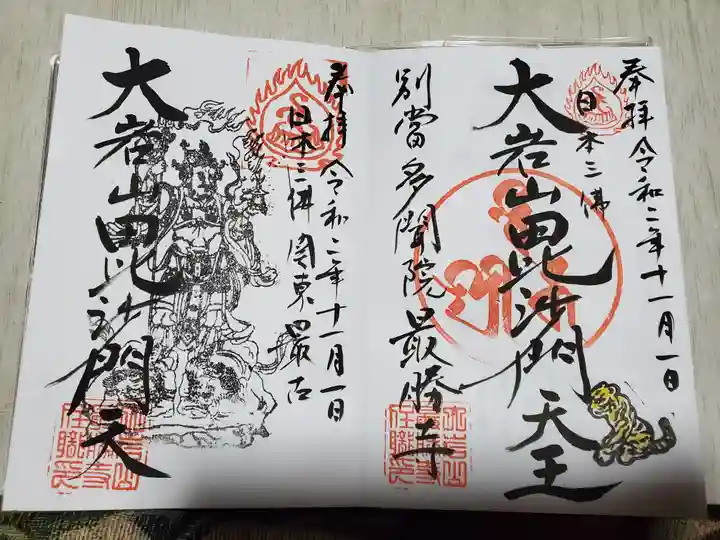 奉拝 令和二年十一月一日
日本三佛
大岩山毘沙門天王
別當多聞院最勝寺
奉拝 令和二年十一月一日
日本三佛 関東最古
大岩山毘沙門天